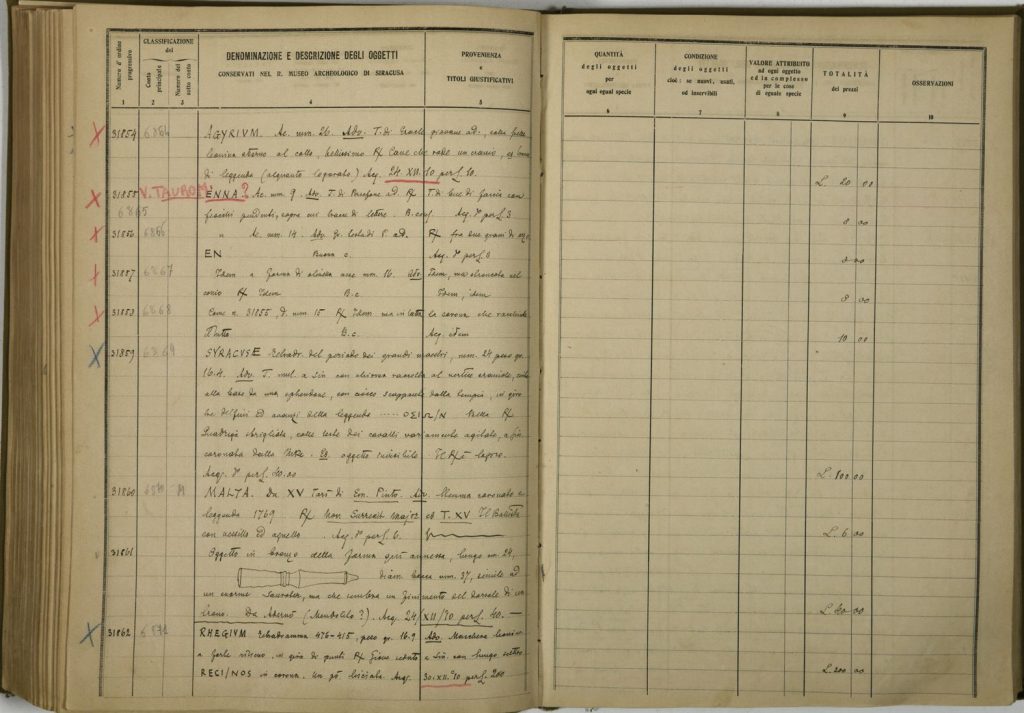 Numero d'ordine progressivo
CLASSIFICAZIONE del
Conto principale
Numero del sotto conto
DENOMINAZIONE E DESCRIZIONE DEGLI OGGETTI
CONSERVATI NEL R. MUSEO ARCHEOLOGICO DI SIRACUSA
PROVENIENZA
e
TITOLI GIUSTIFICATIVI
1 2 3 4 5
QUANTITÀ
degli oggetti
per
ogni egual specie
CONDIZIONE
degli oggetti
cioè: se nuovi, usati,
od inservibili
VALORE ATTRIBUITO
ad ogni oggetto
ed in complesso
per le cose
di eguale specie
TOTALITÀ
dei prezzi
OSSERVAZIONI
6 7 8 9 10
31854 6864 AGYRIUM. Ae. mm. 26. Adv. T. di Eracle giovane ad., colla pelle
leonina attorno al collo, bellissimo R/ Cane che rode un
di leggenda (alquanto logorato) Acq. 24 XII. 10 per £. 20.
L. 20 00
31855 V. TAUROM. ENNA? Ae. mm. 9. Adv. T. di Persefone ad. R/ T. di bue di faccia con
6865 pendenti, sopra cui tracce di lettere. B. cons. Acq. Id per £. 8
8 00
31856 6866 " Ae. mm. 14. Adv. Gr. testa di P. ad. R/ fra due grani di
EN Buona c. Acq. Id per £. 8
8 00
31857 6867 Idem a forma di mm. 16. Adv. Idem, ma stroncata nel
conio R/ Idem B.c. Idem, idem
8 00
31858 6868 Come n. 31855, D. mm 15 R/ Idem ma in la corona che racchiude
tutto B.c. Acq. idem
10 00
31859 6869 SYRACUSE Tetradr. del periodo dei grandi maestri, mm. 24 peso gr.
16.4. Adv. T. mul. a sin. con chioma raccolta al vertice
alla base da una sphendone, con dalla in giro
ed avanzi della leggenda ..... ΟΣΙΩ/Ν Bella R/
Quadriga sbrigliata, colle teste dei cavalli variamente agitate, a sin.
coronata dalla Nike. Es. oggetto invisibile Il R/ è logoro.
Acq. Id per £. 100.00
L. 100 00
31860 6870 M MALTA. Da XV Tarì di Em. Pinto. Adv. Stemma coronato e
leggenda 1769 R/ Non Surrexit Major ed T. XV Il Battista
con vessillo ed agnello. Acq. Id per £. 6.
L. 6 00
31861 Oggetto in bronzo della forma qui annessa, lungo cm. 24,
diam. bocca mm. 37, simile ad
un enorme Saurotér, ma che sembra un finimento del dorsale di un
trono. Da Adernò (Mendolito?). Acq. 24/XII/10 per £. 40. —
L. 40 00
31862 6871 RHEGIUM. Tetradramma 476-415, peso gr. 16.9 Adv. Maschera leonina
a forte rilievo, in giro di punti R/ Giove seduto a sin. con lungo scettro
RECI/NOS in corona. Un pò lisciata Acq. 30. XII. 10 per £. 200
L. 200 00